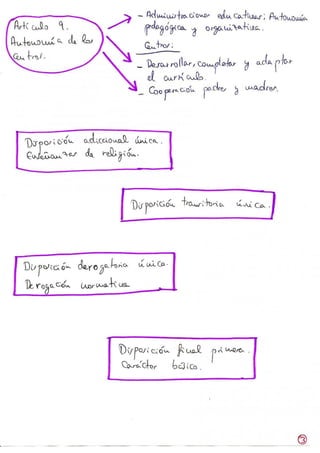 Artículo 9.
Autonomía de los
Centros.
- Administraciones educativas: Autonomía
pedagógica y organizativa.
Centros:
- Desarrollar, completar y adaptar
el currículo.
- Cooperación padres y madres.
Disposición adicional única.
Enseñanzas de religión.
Disposición transitoria única.
Disposición derogatoria única.
Derogación normativa
Disposición final primera.
Carácter básico.
3